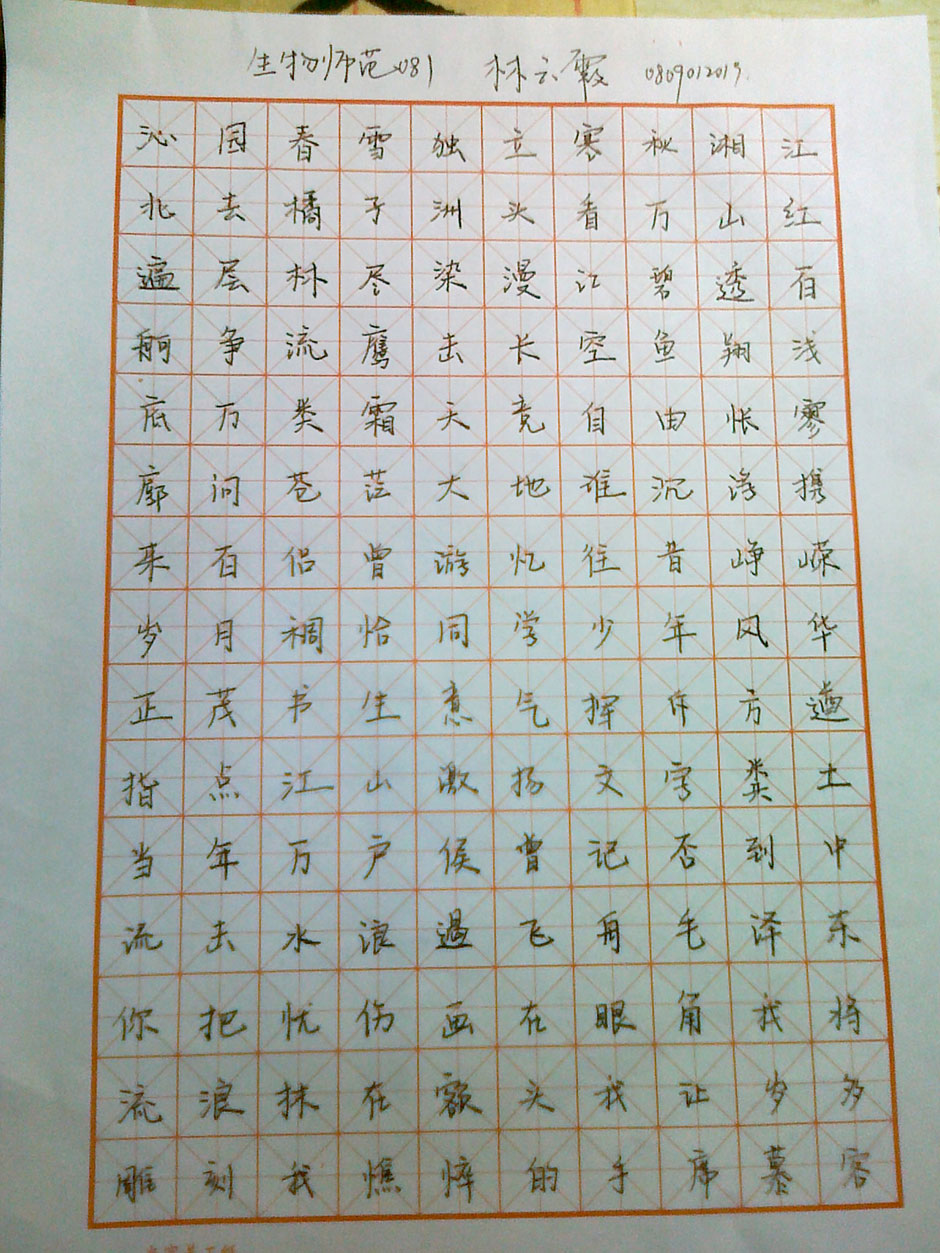 生物师范081 林云霞 0809012019
沁园春雪独立寒秋湘江
北去橘子洲头看万山红
遍层林尽染漫江碧透百
舸争流鹰击长空鱼翔浅
底万类霜天竞自由怅寥
廓问苍茫大地谁沉浮携
来百侣曾游忆往昔峥嵘
岁月稠恰同学少年风华
正茂书生意气挥斥方遒
指点江山激扬文字粪土
当年万户侯曾记否到中
流击水浪遏飞舟毛泽东
你把忧伤画在眼角我将
流浪抹在额头我让岁多
雕刻我憔悴的手席慕容